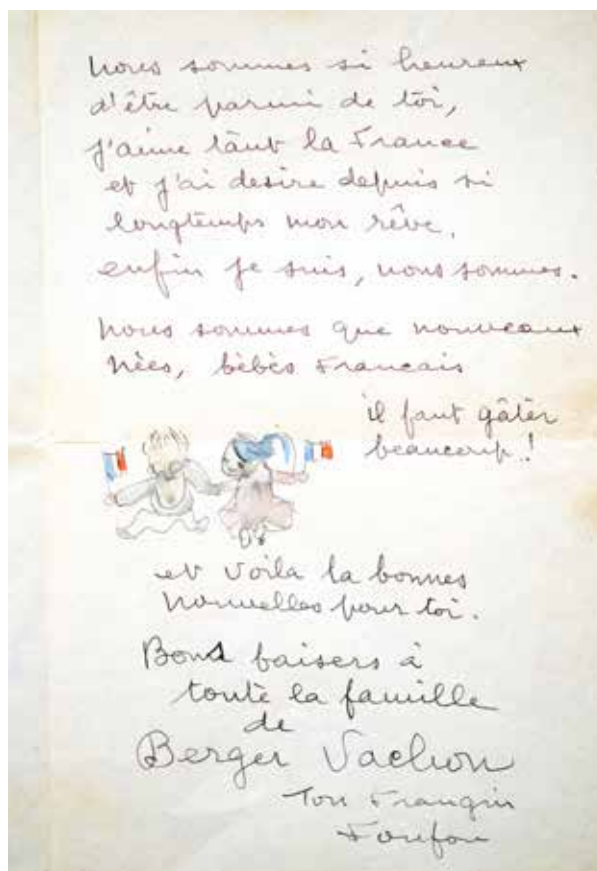 nous sommes si heureux
d'être parmi de toi,
j'aime tânt la France
et j'ai desire depuis si
longtemps mon rêve,
enfin je suis, nous sommes.
nous sommes que nouveaux
nèes, bèbès Francais
il faut gâter
beaucoup!
et voila la bonnes
nouvelles pour toi.
Bond baisers à
toute la famille
de
Berger Vachon
Ton Frangin
Foufou